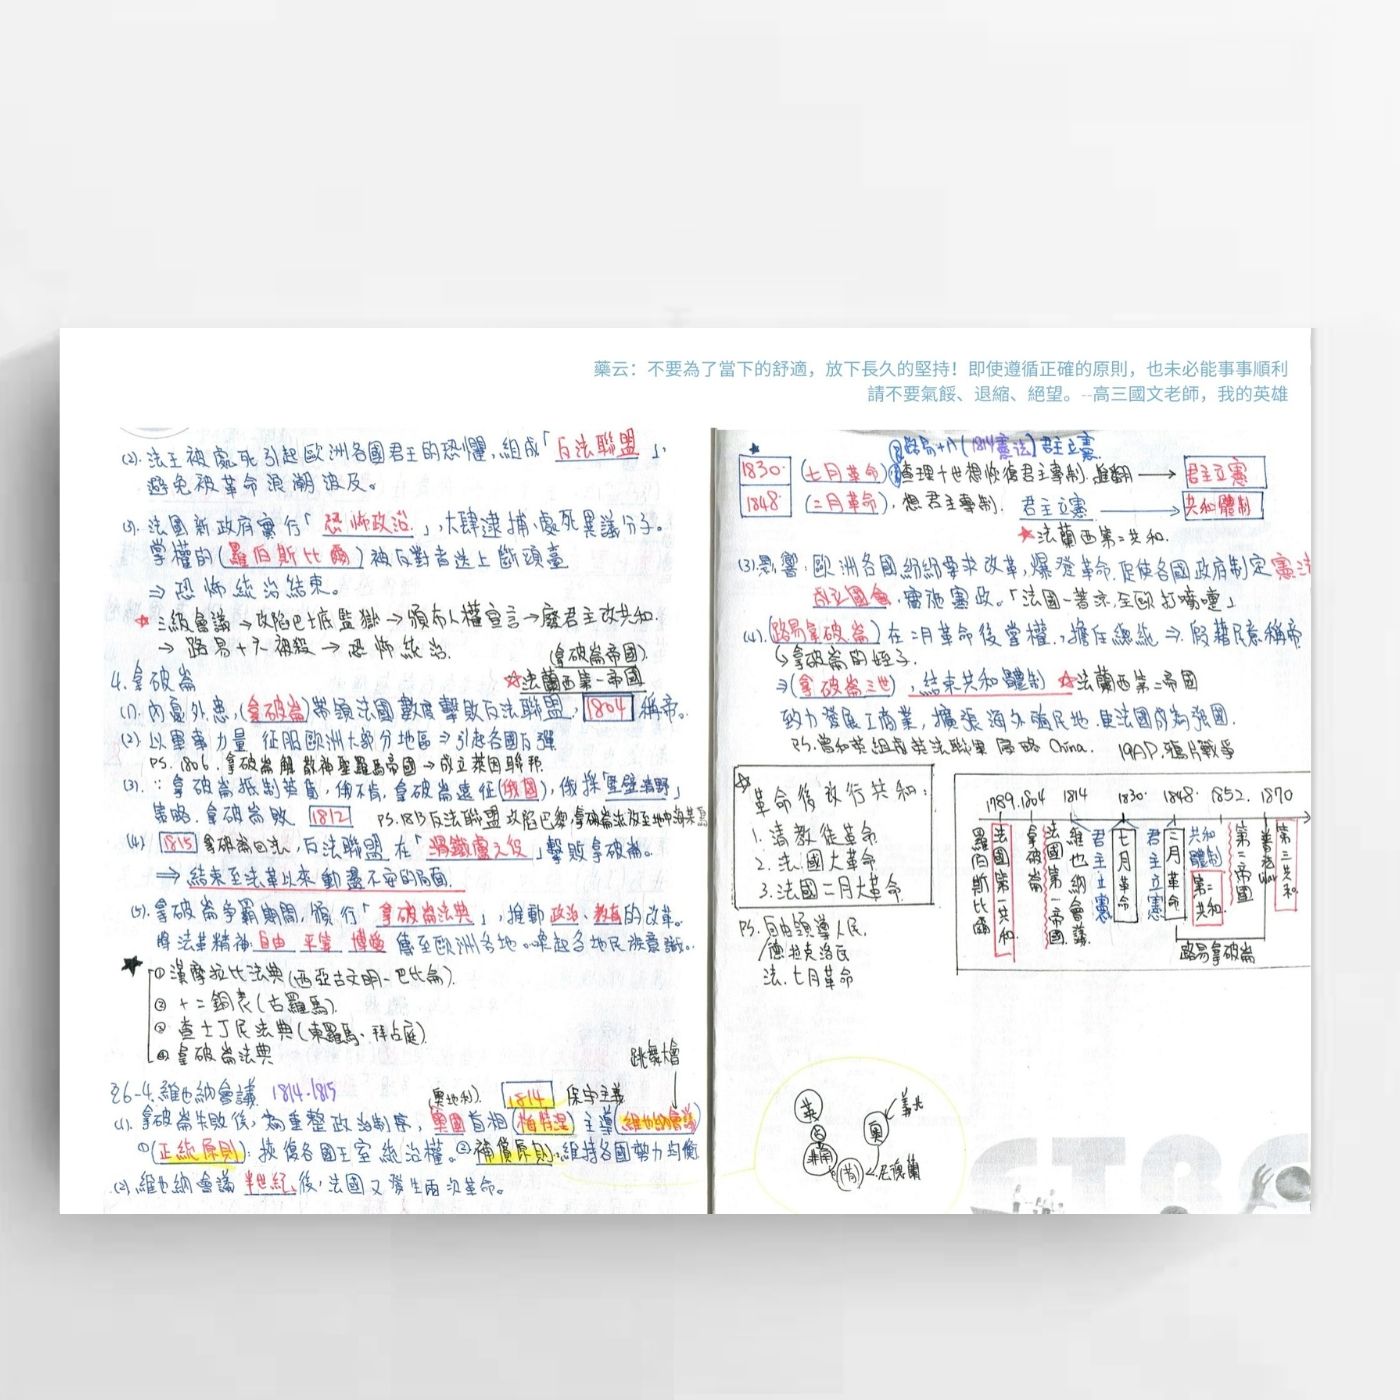 藥云：不要為了當下的舒適，放下長久的堅持！即使遵循正確的原則，也未必能事事順利
請不要氣餒、退縮、絕望。--高三國文老師，我的英雄
(2). 法王被處死引起歐洲各國君主的恐懼，組成「反法聯盟」，
避免被革命浪潮波及。
(3). 法國新政府實行「恐怖政治」，大肆逮捕、處死異議分子。
掌權的(羅伯斯比爾)被反對者送上斷頭臺
⇒恐怖統治結束。
三級會議→攻陷巴士底監獄→頒布人權宣言→廢君主改共和.
→路易十六被殺→恐怖統治.
(拿破崙帝國).
4.拿破崙
☆法蘭西第一帝國
(1). 內憂外患,(拿破崙)帶領法國數度擊敗反法聯盟，1804稱帝。
(2) 以軍事力量 征服歐洲大部分地區⇒引起各國反彈
PS. 1806. 拿破崙解散神聖羅馬帝國→成立萊因聯邦.
(3). ∵拿破崙抵制英貨，俄不肯. 拿破崙遠征(俄國)，俄採「堅壁清野」
策略. 拿破崙敗 1812 PS.1813反法聯盟攻陷巴黎.拿破崙流放至地中海
(4) 1815 拿破崙回法, 反法聯盟在「滑鐵盧之役」擊敗拿破崙。
⇒結束至法革以來動盪不安的局面.
(5). 拿破崙爭霸期間，頒行「拿破崙法典」，推動政治、教育的改革。
將法革精神自由 平等 博愛 傳至歐洲各地。牽起各地民族意識。
★①漢摩拉比法典(西亞古文明-巴比倫).
②十二銅表(古羅馬).
③查士丁尼法典(東羅馬、拜占庭).
④拿破崙法典
跳舞大會
26-4.維也納會議. 1814.1815
(奧地利). 1814 保守主義
(1). 拿破崙失敗後，為重整政治秩序，奧國首相(梅特涅)主導(維也納會議)
①(正統原則)：恢復各國王室統治權。②補償原則:維持各國勢力均衡
(2). 維也納會議 半世紀後，法國又發生兩次革命。
路易十八(1814憲法)君主立憲.
1830. (七月革命) 查理十世想恢復君主專制. 推翻→君主立憲
1848. (二月革命). 想君主專制. 君主立憲→共和體制
☆法蘭西第二共和.
(3).影響：歐洲各國紛紛要求改革，爆發革命.促使各國政府制定憲法
成立國會，實施憲政。「法國一著涼,全歐打噴嚏」
(4).(路易拿破崙)在二月革命後掌權，擔任總統⇒假藉民意稱帝
↳拿破崙的姪子.
⇒(拿破崙三世)，結束共和體制 ☆法蘭西第二帝國
致力發展工商業，擴張海外殖民地.使法國成為強國.
PS.曾和英組成英法聯軍侵略China. 19AD.鴉片戰爭
☆革命後改行共和：
1.清教徒革命
2.法國大革命
3.法國二月大革命
1789.1804 1814 1830. 1848. 1852. 1870
羅伯斯比爾
法國第一共和.
拿破崙
法國第一帝國
維也納會議
君主立憲
七月革命
君主立憲
二月革命
共和體制
第二共和.
第二帝國
第三共和
路易拿破崙
PS.自由領導人民.
德拉克洛瓦
法.七月革命
英
奧
義北
荷
尼德蘭